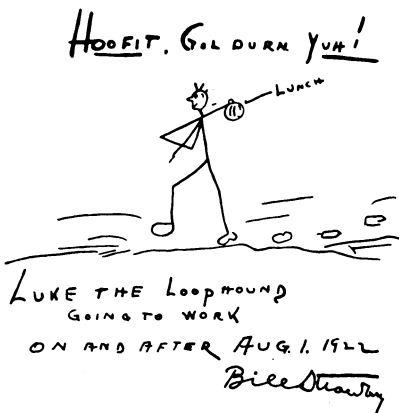 HOOFIT, GOL DURN YUH!
LUNCH
LUKE THE LOOPHOUND
GOING TO WORK
ON AND AFTER AUG. 1. 1922
Bill